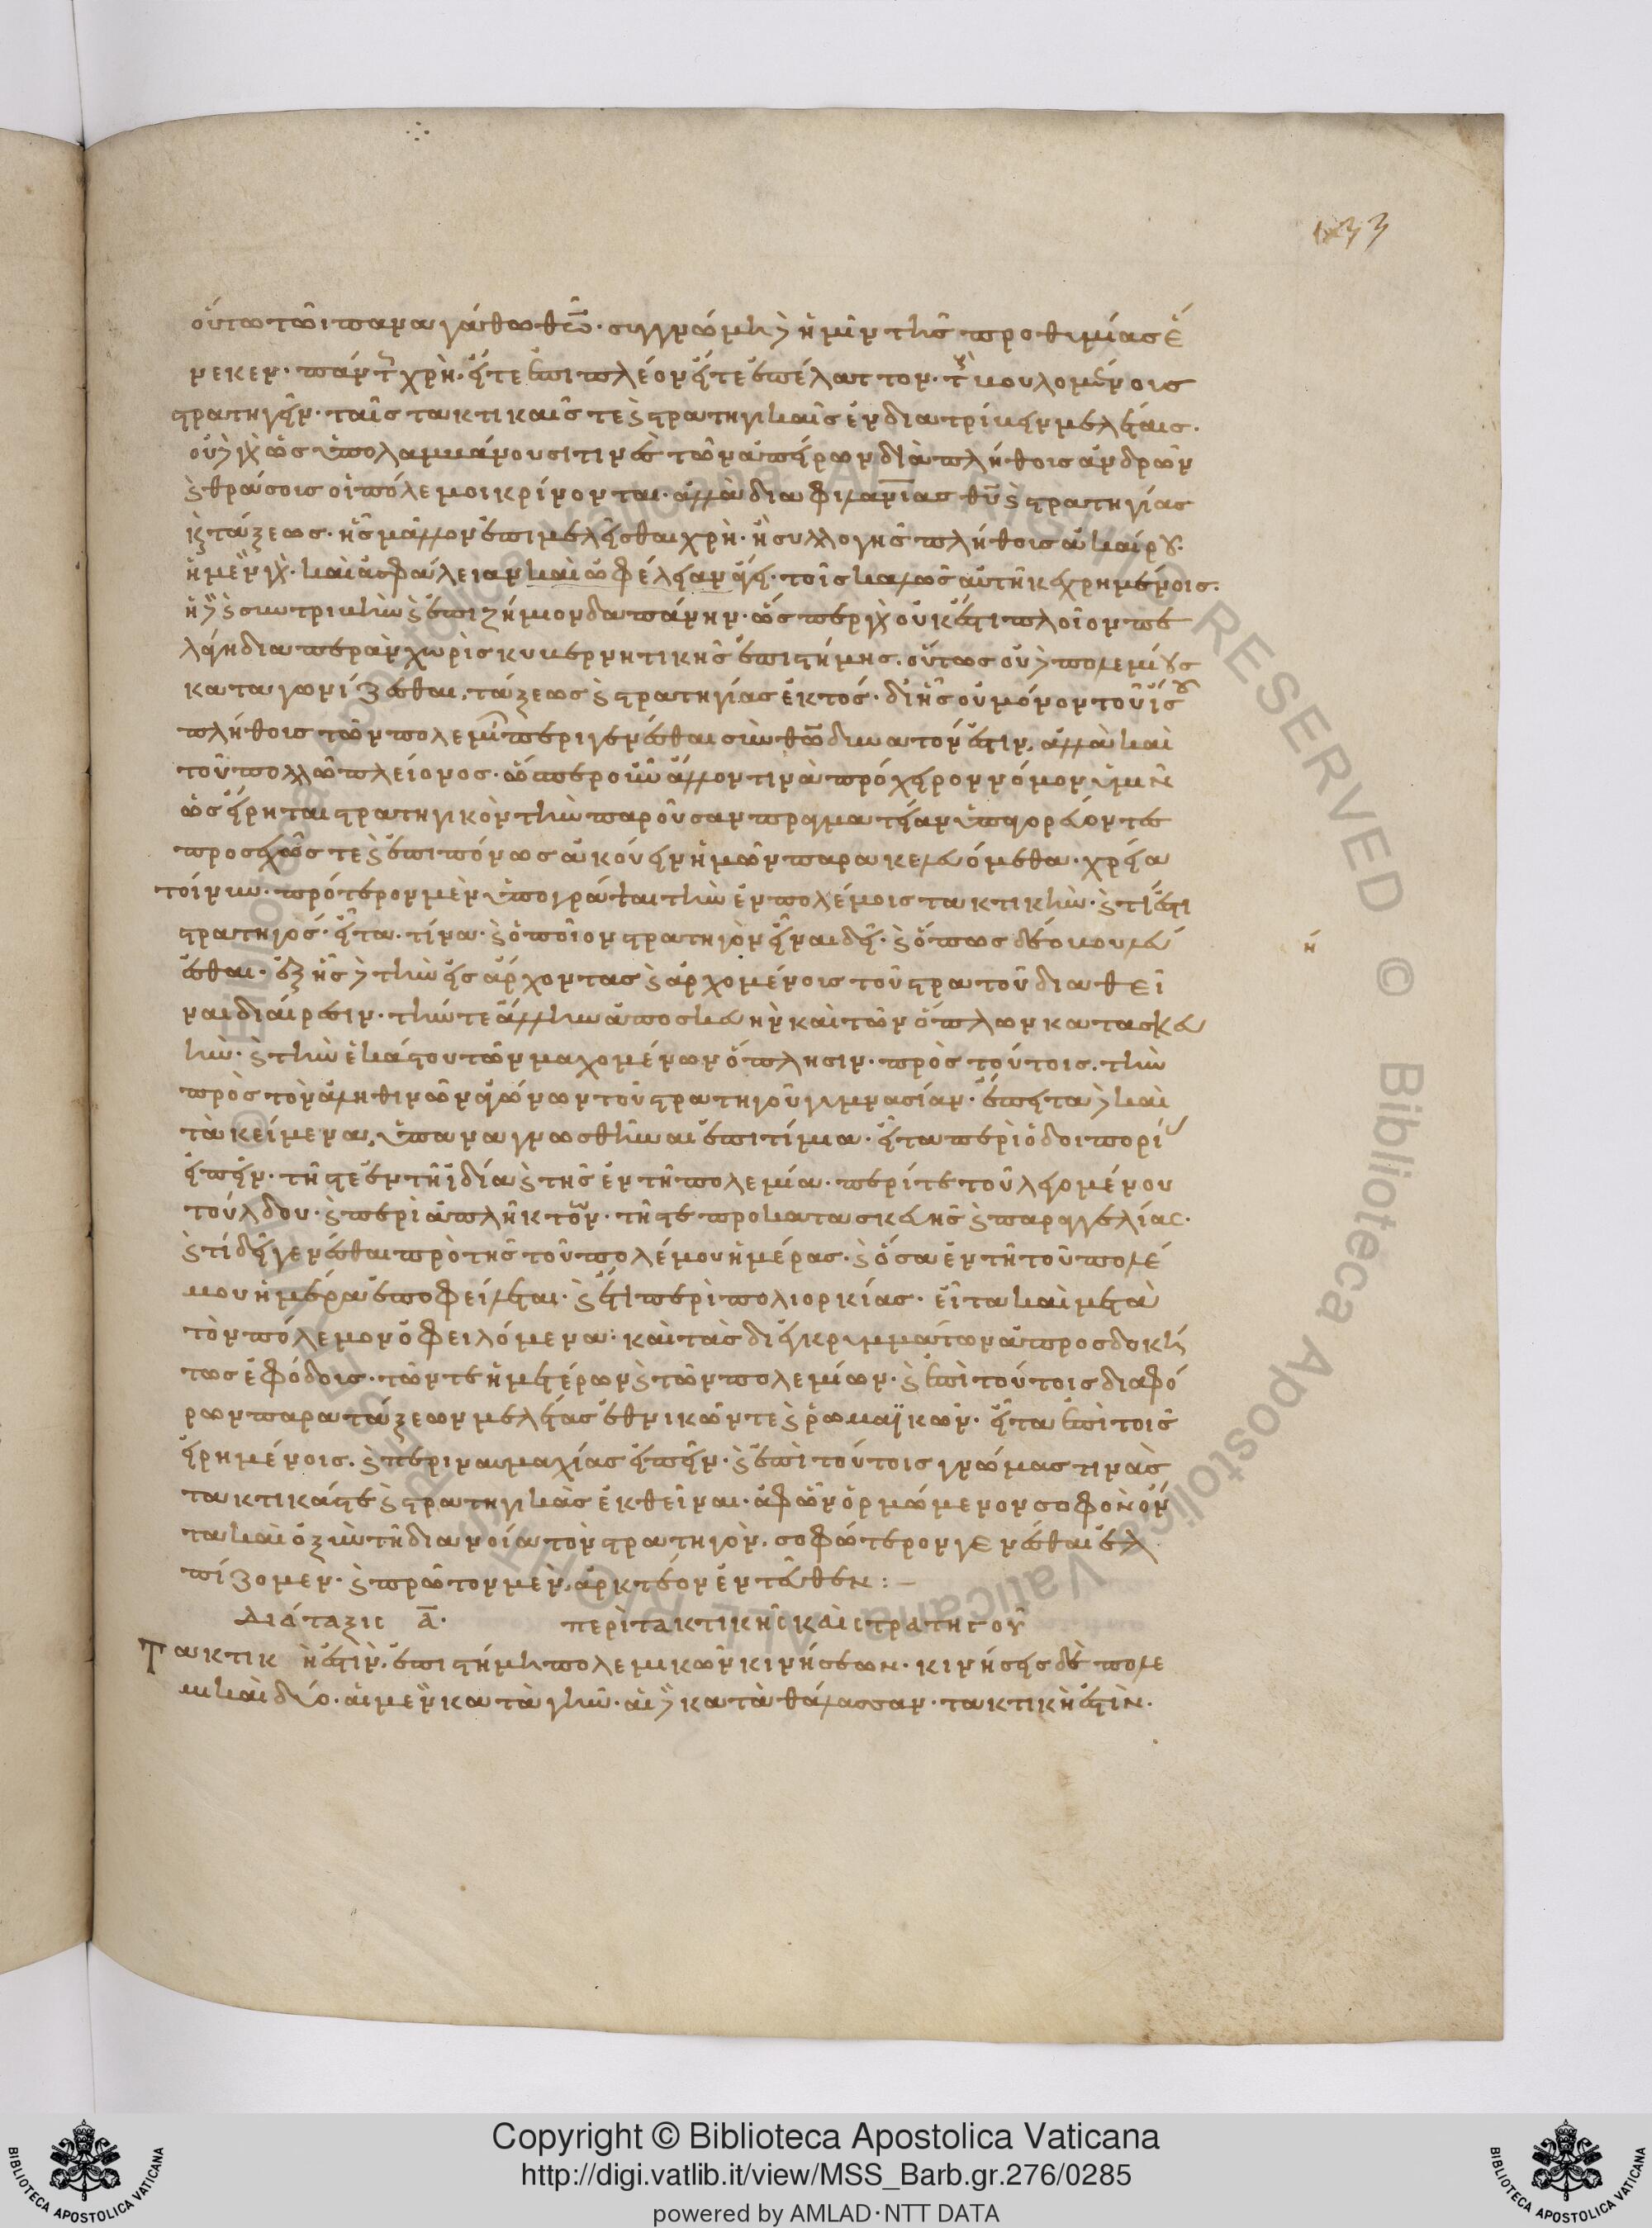 133
οὕτω τῶι παραγάθω θεῶ· συγγνώμη δὲ ἡμῖν τῆς προθυμίας ἕ
νεκεν· πάντως χρὴ· εἴτε ἐπιπλέον εἴτε ἐπέλαττον· τοῖς βουλομένοις
στρατηγεῖν· ταῖς τακτικαῖς τε καὶ στρατηγικαῖς ἐνδιατρίβειν μελέταις·
οὐ γὰρ ὡς ὑπολαμβάνουσί τινες τῶν ἀπείρων διὰ πλήθους ἀνδρῶν
καὶ θράσους οἱ πόλεμοι κρίνονται· ἀλλὰ δια φιλανίας θῦ καὶ στρατηγίας
καὶ τάξεως· ἧς μᾶλλον ἐπιμελεῖσθαι χρὴ· ἢ συλλογῆς πλήθους ἀκαίρου·
ἡ μὲν γὰρ· καὶ ἀσφάλειαν καὶ ὠφέλειαν ἄγει· τοῖς καλῶς αὐτῆ κεχρημένοις·
ἡ δὲ καὶ συντριβὴν καὶ ἐπιζήμιον δαπάνην· ὥσπερ γὰρ οὐκ ἔστι πλοῖον πε
λάγη διαπερᾶν χωρὶς κυβερνητικῆς ἐπιστήμης· οὕτως οὐδὲ πολεμίους
καταγωνίζεσθαι, τάξεως καὶ στρατηγίας ἐκτός· δι ἧς οὐ μόνον τοῦ ἴσου
πλήθους τῶν πολεμίων περιγενέσθαι σὺν θεῶ δυνατόν ἐστιν, ἀλλὰ καὶ
τοῦ πολλῶ πλείονος· ὥσπερ οὖν ἄλλον τινὰ πρόχειρον νόμον ὑμῖν
ὡς εἴρηται στρατηγικὸν τὴν παροῦσαν πραγματείαν ὑπαγορεύοντες
προσεχῶς τε καὶ ἐπιπόνως ἀκούειν ἡμῶν παρακελευόμεθα· χρεία
τοίνυν· πρότερον μὲν ὑπογράψαι τὴν ἐν πολέμοις τακτικὴν· καὶ τί ἐστι
στρατηγός· εἶτα· τίνα· καὶ ὁποῖον στρατηγὸν εἶναι δεῖ· καὶ ὅπως δέοι βουλεύ
εσθαι· ἑξῆς δὲ τὴν εἰς ἄρχοντας καὶ ἀρχομένους τοῦ στρατοῦ διαθεῖ
ναι διαίρεσιν· τήν τε ἄλλην ἀποσκευὴν καὶ τῶν ὅπλων κατασκευ
ὴν· καὶ τὴν ἑκάστου τῶν μαχομένων ὅπλησιν· πρὸς τούτοις· τὴν
πρὸς τὸν ἀληθινῶν ἀγώνων τοῦ στρατηγοῦ γυμνασίαν· ἔπειτα δὲ καὶ
τὰ κείμενα, ὑπαναγνωσθῆναι ἐπιτίμια· εἶτα περὶ ὁδοιπορί
εἰπεῖν· τῆς τε ἐν τῆ ἰδία καὶ τῆς ἐν τῆ πολεμία· περί τε τοῦ λεγομένου
τούλδου· καὶ περὶ ἀπλήκτων· τῆς τε προκατασκευῆς καὶ παραγγελίας·
καὶ τί δεῖ γενέσθαι πρὸ τῆς τοῦ πολέμου ἡμέρας· καὶ ὅσα ἐν τῆ τοῦ πολέ
μου ἡμέρα ἐποφείλεται· καὶ ἔτι περὶ πολιορκίας· εἶτα καὶ μετὰ
τὸν πόλεμον ὀφειλόμενα· καὶ τὰς δι ἐγκρυμμάτων ἀπροσδοκή
τως ἐφόδους· τῶν τε ἡμετέρων καὶ τῶν πολεμίων· καὶ ἐπὶ τούτοις διαφό
ρων παρατάξεων μελέτας ἐθνικῶν τε καὶ ῥωμαϊκῶν· εἶτα ἐπὶ τοῖς
εἰρημένοις· καὶ περὶ ναυμαχίας εἰπεῖν· καὶ ἐπὶ τούτοις γνώμας τινὰς
τακτικάς τε καὶ στρατηγικὰς ἐκθεῖναι· ἀφ ὧν ὁρμώμενον σοφὸν ὄν
τα καὶ ὀξὺν τῆ διανοία τὸν στρατηγὸν, σοφώτερον γενέσθαι ἐλ
πίζομεν· καὶ πρῶτον μὲν, ἀρκτέον ἐντεῦθεν:—
ή
Διάταξις ᾱ· περὶ τακτικῆς καὶ στρατηγοῦ
Τακτικὴ ἐστὶν, ἐπιστήμη πολεμικῶν κινήσεων· κινήσεις δὲ πολε
μικαὶ δύο· αἱ μὲν κατὰ γῆν· αἱ δὲ κατὰ θάλασσαν· τακτικὴ ἐστὶν·
RIGHTS RESERVED © Biblioteca Apostolica Vaticana
Copyright © Biblioteca Apostolica Vaticana
http://digi.vatlib.it/view/MSS_Barb.gr.276/0285
powered by AMLAD·NTT DATA
BIBLIOTECA APOSTOLICA VATICANA
BIBLIOTECA APOSTOLICA VATICANA